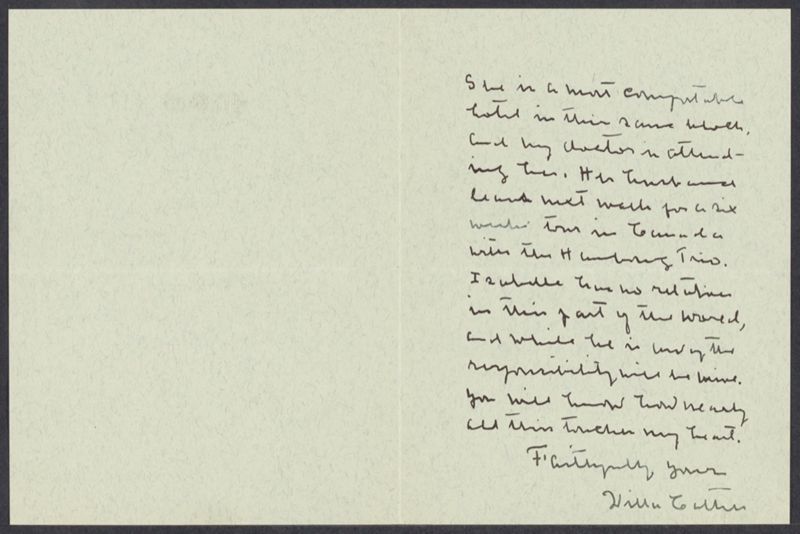 She is a most comfortable
hotel in this same block,
and my doctor is attend-
ing her. Her husband
leaves next week for a six
weeks tour in Canada
with the Hambourg Trio.
Isabelle has no relatives
in this part of the world,
and while he is away the
responsibility will be mine.
You will know how nearly
all this touches my heart.
Faithfully yours
Willa Cather